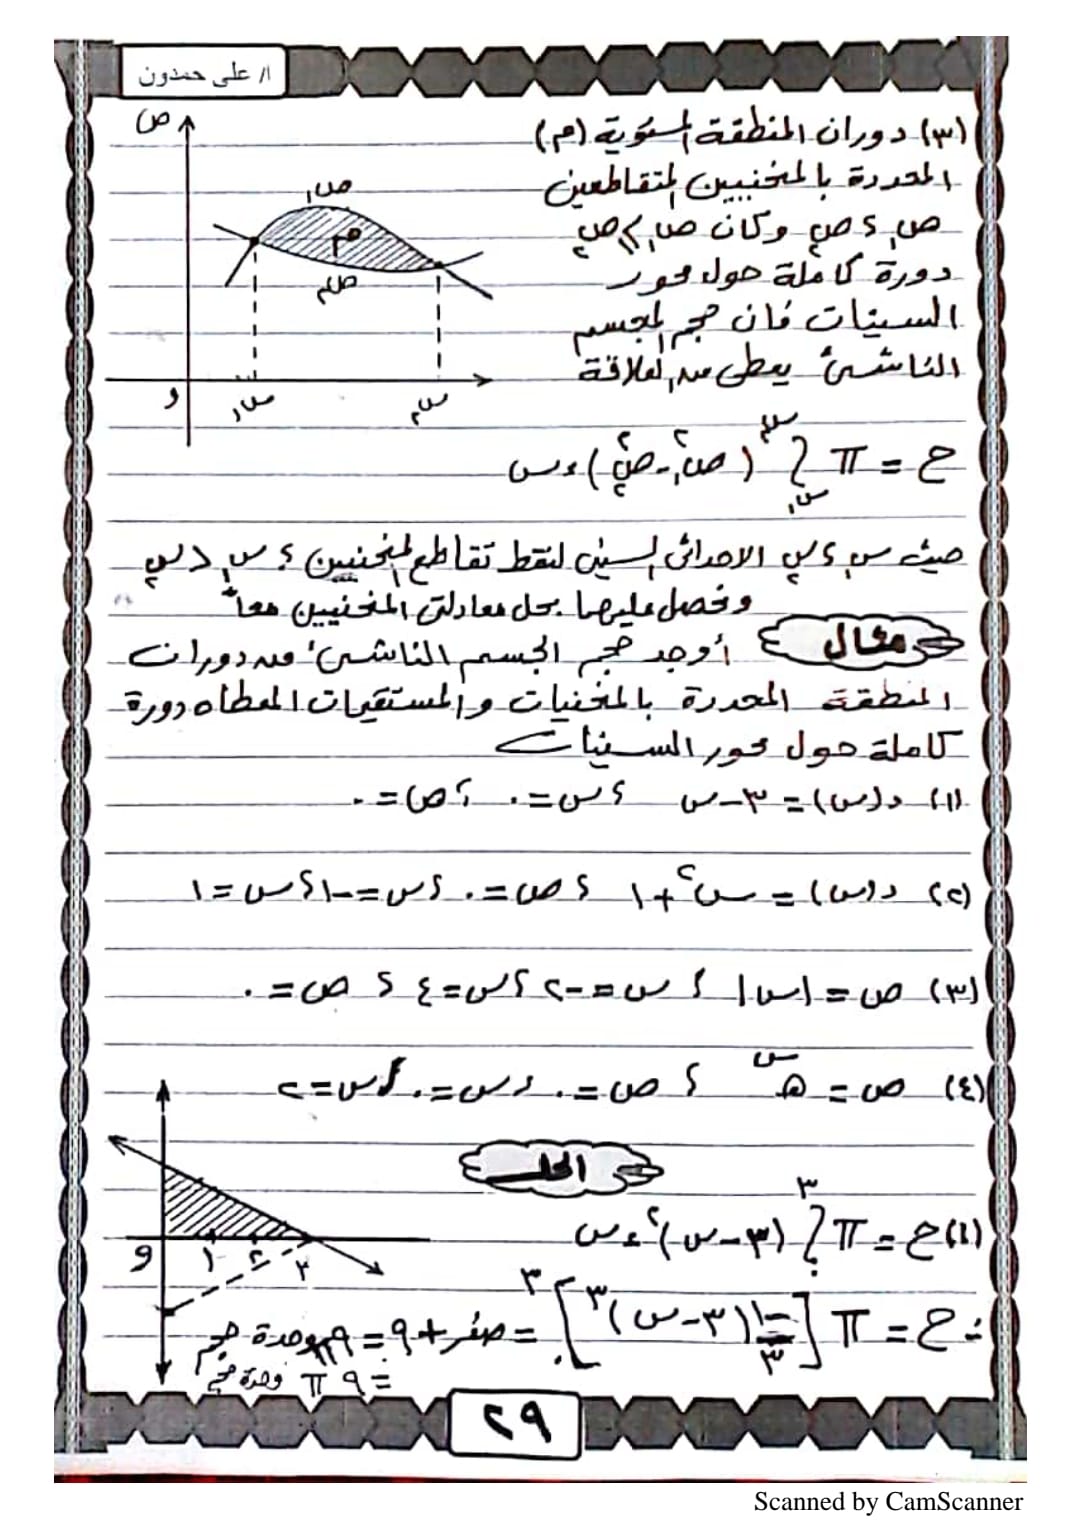 أ/ على حمدون
(٣) دوران المنطقة المستوية (م)
المحددة بالمنحنيين المتقاطعين
ص١ ، ص٢ وكان ص١ ≥ ص٢
دورة كاملة حول محور
السينات فان حجم المجسم
الناشئ يعطى من العلاقة
ص
ص١
م
ص٢
و
س١
س٢
ح = π ∫س١^س٢ (ص١² - ص٢²) ءس
حيث س١ ، س٢ الاحداثى السينى لنقط تقاطع المنحنيين ، س١ < س٢
ونحصل عليهما بحل معادلتى المنحنيين معاً
مثال
أوجد حجم الجسم الناشئ من دوران
المنطقة المحددة بالمنحنيات والمستقيمات المعطاه دورة
كاملة حول محور السينات
(١) د(س) = ٣ - س ، س = ٠ ، ص = ٠
(٢) د(س) = س² + ١ ، ص = ٠ ، س = -١ ، س = ١
(٣) ص = |س| ، س = -٢ ، س = ٤ ، ص = ٠
(٤) ص = هـ^س ، ص = ٠ ، س = ٠ ، س = ٢
الحل
(١) ح = π ∫٠^٣ (٣ - س)² ءس
و ١ ٢ ٣
∴ ح = π [-١/٣ (٣ - س)³]٠^٣ = صفر + ٩ = ٩π وحدة حجم
= ٩ π وحدة حجم
٢٩
Scanned by CamScanner